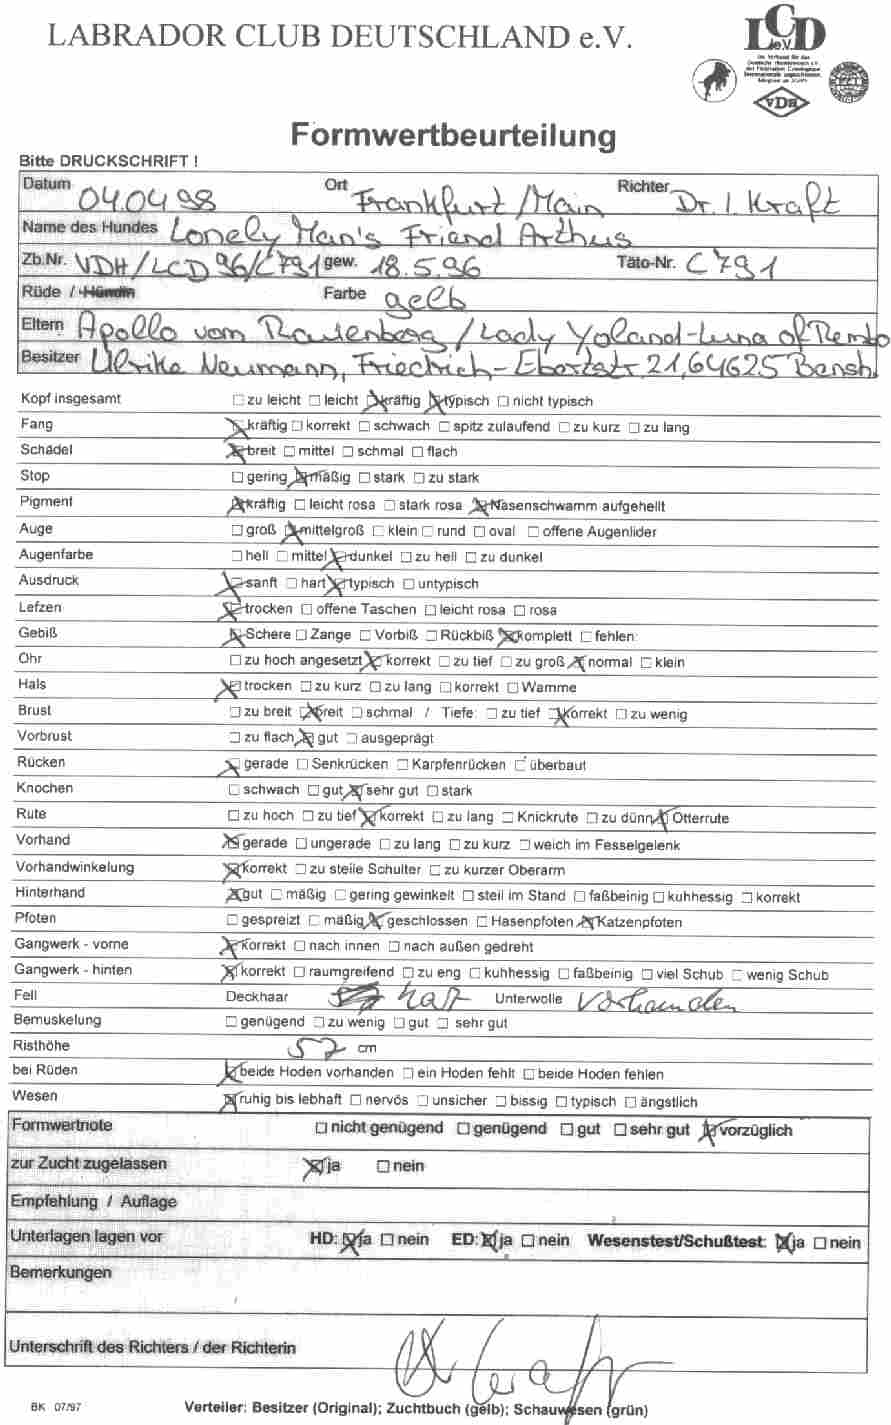 LABRADOR CLUB DEUTSCHLAND e.V.
LCD
e.V.
VDH
Formwertbeurteilung
Bitte DRUCKSCHRIFT !
Datum 04.04.98 Ort Frankfurt/Main Richter Dr. I. Kraft
Name des Hundes Lonely Man's Friend Arthus
Zb.Nr. VDH/LCD 96/C791 gew. 18.5.96 Täto-Nr. C791
Rüde / Hündin Farbe gelb
Eltern Apollo vom Rautenberg / Lady Yoland-Luna of Rembo
Besitzer Ulrike Neumann, Friedrich-Ebertstr. 21, 64625 Bensh.
Kopf insgesamt ☐ zu leicht ☐ leicht ☒ kräftig ☒ typisch ☐ nicht typisch
Fang ☒ kräftig ☐ korrekt ☐ schwach ☐ spitz zulaufend ☐ zu kurz ☐ zu lang
Schädel ☒ breit ☐ mittel ☐ schmal ☐ flach
Stop ☐ gering ☒ mäßig ☐ stark ☐ zu stark
Pigment ☒ kräftig ☐ leicht rosa ☐ stark rosa ☒ Nasenschwamm aufgehellt
Auge ☐ groß ☒ mittelgroß ☐ klein ☐ rund ☐ oval ☐ offene Augenlider
Augenfarbe ☐ hell ☐ mittel ☒ dunkel ☐ zu hell ☐ zu dunkel
Ausdruck ☒ sanft ☐ hart ☒ typisch ☐ untypisch
Lefzen ☒ trocken ☐ offene Taschen ☐ leicht rosa ☐ rosa
Gebiß ☒ Schere ☐ Zange ☐ Vorbiß ☐ Rückbiß ☒ komplett ☐ fehlen:
Ohr ☐ zu hoch angesetzt ☒ korrekt ☐ zu tief ☐ zu groß ☒ normal ☐ klein
Hals ☒ trocken ☐ zu kurz ☐ zu lang ☐ korrekt ☐ Wamme
Brust ☐ zu breit ☒ breit ☐ schmal / Tiefe: ☐ zu tief ☒ korrekt ☐ zu wenig
Vorbrust ☐ zu flach ☒ gut ☐ ausgeprägt
Rücken ☒ gerade ☐ Senkrücken ☐ Karpfenrücken ☐ überbaut
Knochen ☐ schwach ☐ gut ☒ sehr gut ☐ stark
Rute ☐ zu hoch ☐ zu tief ☒ korrekt ☐ zu lang ☐ Knickrute ☐ zu dünn ☒ Otterrute
Vorhand ☒ gerade ☐ ungerade ☐ zu lang ☐ zu kurz ☐ weich im Fesselgelenk
Vorhandwinkelung ☒ korrekt ☐ zu steile Schulter ☐ zu kurzer Oberarm
Hinterhand ☒ gut ☐ mäßig ☐ gering gewinkelt ☐ steil im Stand ☐ faßbeinig ☐ kuhhessig ☐ korrekt
Pfoten ☐ gespreizt ☐ mäßig ☒ geschlossen ☐ Hasenpfoten ☒ Katzenpfoten
Gangwerk - vorne ☒ korrekt ☐ nach innen ☐ nach außen gedreht
Gangwerk - hinten ☒ korrekt ☐ raumgreifend ☐ zu eng ☐ kuhhessig ☐ faßbeinig ☐ viel Schub ☐ wenig Schub
Fell Deckhaar hart Unterwolle vorhanden
Bemuskelung ☐ genügend ☐ zu wenig ☐ gut ☐ sehr gut
Risthöhe 57 cm
bei Rüden ☒ beide Hoden vorhanden ☐ ein Hoden fehlt ☐ beide Hoden fehlen
Wesen ☒ ruhig bis lebhaft ☐ nervös ☐ unsicher ☐ bissig ☐ typisch ☐ ängstlich
Formwertnote ☐ nicht genügend ☐ genügend ☐ gut ☐ sehr gut ☒ vorzüglich
zur Zucht zugelassen ☒ ja ☐ nein
Empfehlung / Auflage
Unterlagen lagen vor HD: ☒ ja ☐ nein ED: ☒ ja ☐ nein Wesenstest/Schußtest: ☒ ja ☐ nein
Bemerkungen
Unterschrift des Richters / der Richterin
BK 07/97 Verteiler: Besitzer (Original); Zuchtbuch (gelb); Schauwesen (grün)